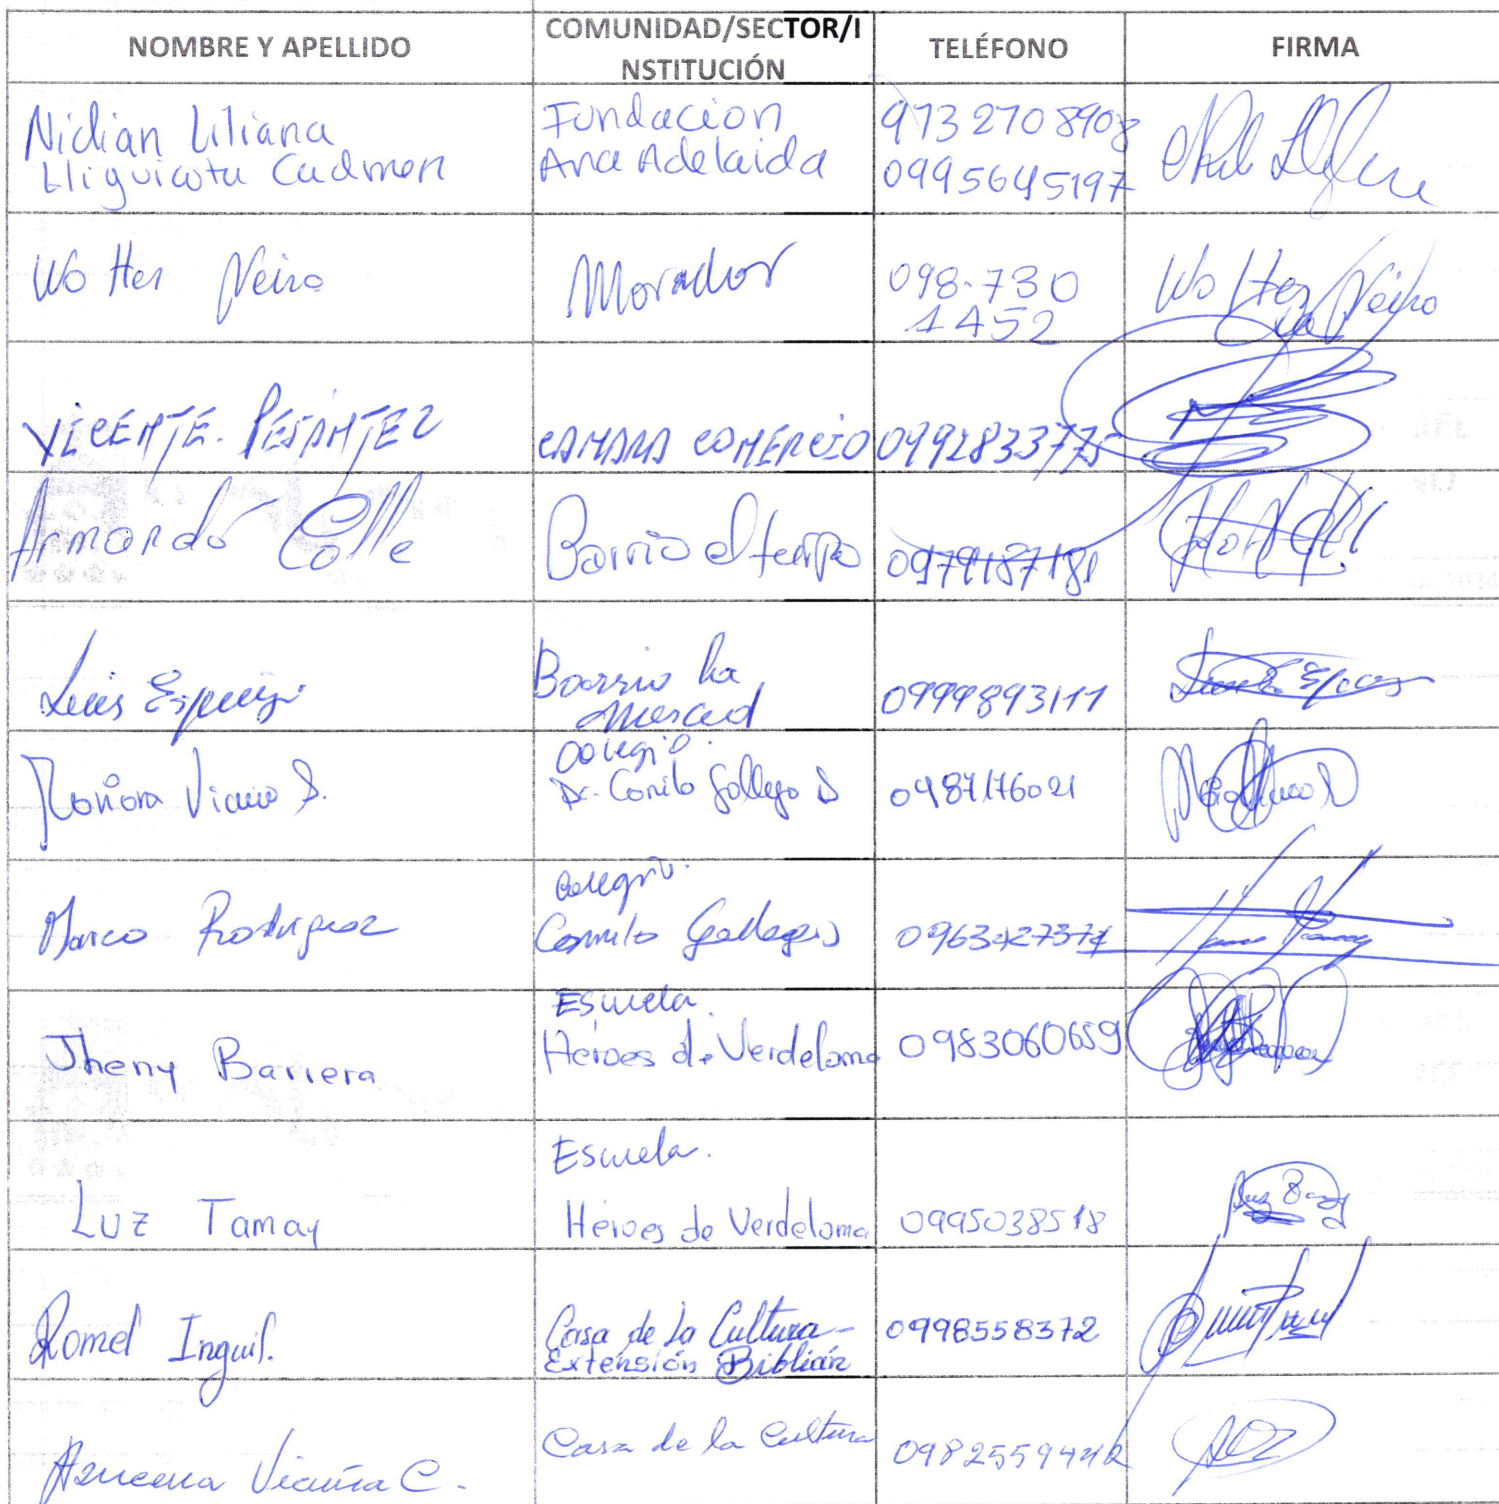 NOMBRE Y APELLIDO
COMUNIDAD/SECTOR/I
NSTITUCIÓN
TELÉFONO
FIRMA
Nidian Liliana
Lliguicota Cadmen
Fundacion
Ana Adelaida
973 270 8908
0995645197
Wolter Neira
Morador
098-730
1452
Wolter Neira
VICENTE. PESANTEZ
CAMARA COMERCIO
0992833775
Armando Calle
Barrio el
0979187181
Luis
Barrio La
Merced
0999893111
Vicuña S.
Colegio
Dr. Camilo Gallegos D
0987176021
Marco Rodriguez
Colegio.
Camilo Gallegos
Jheny Barrera
Escuela.
Heroes de Verdeloma
0983060659
Luz Tamay
Escuela.
Heroes de Verdeloma
0995038518
Romel Inguil.
Casa de La Cultura -
Extensión Biblián
0998558372
Azucena Vicuña C.
Casa de la Cultura